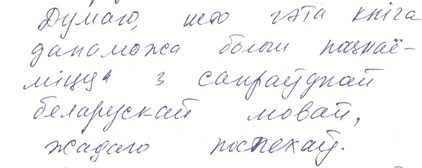 Думаю, што гэта кніга
дапаможа болш пазнаё-
міцца з сапраўднай
беларускай мовай,
жадаю поспехаў.